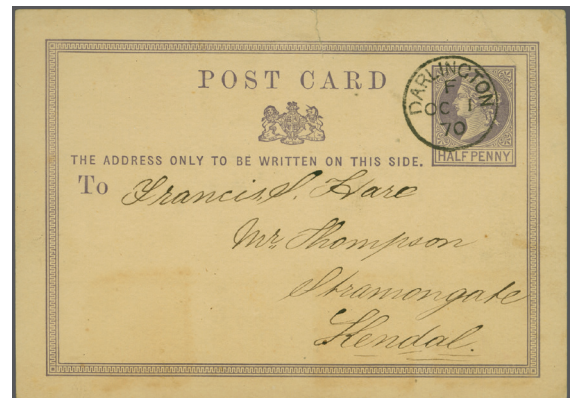 POST CARD
DARLINGTON
F
OC 1
70
HALFPENNY
THE ADDRESS ONLY TO BE WRITTEN ON THIS SIDE.
To Francis S. Hare
Mr. Thompson
Stramongate
Kendal.